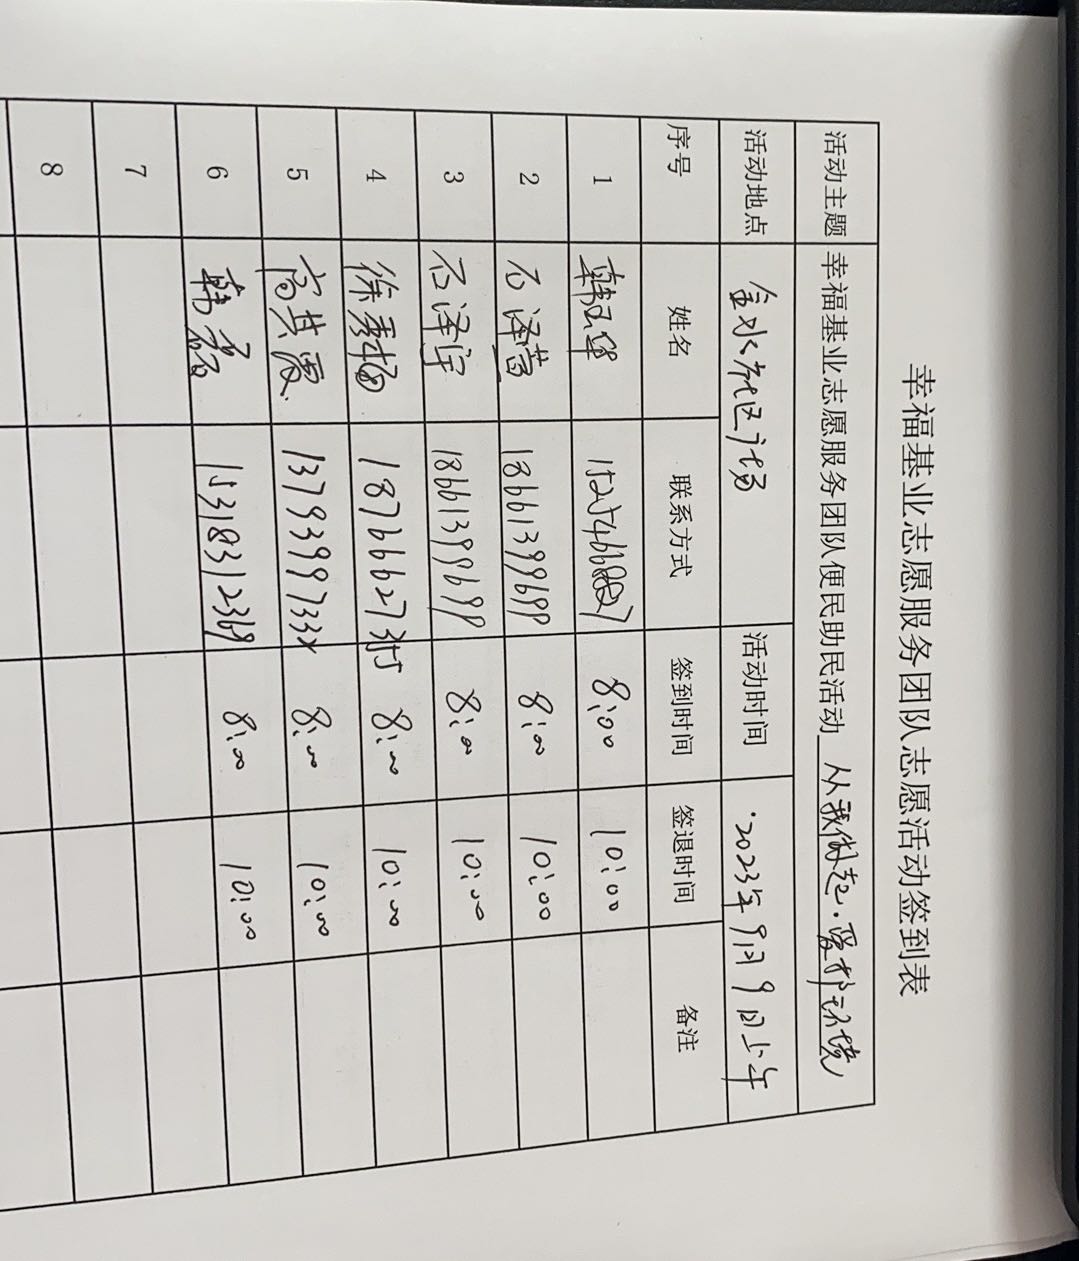 幸福基业志愿服务团队志愿活动签到表
活动主题 幸福基业志愿服务团队便民助民活动 从我做起·爱护环境
活动地点 金水社区广场 活动时间 2023年9月9日上午
序号 姓名 联系方式 签到时间 签退时间 备注
1 韩玉华 8:00 10:00
2 石泽茜 18661399699 8:00 10:00
3 石泽宇 18661399699 8:00 10:00
4 徐秀梅 8:00 10:00
5 高其霞 8:00 10:00
6 韩磊 15318312369 8:00 10:00
7
8